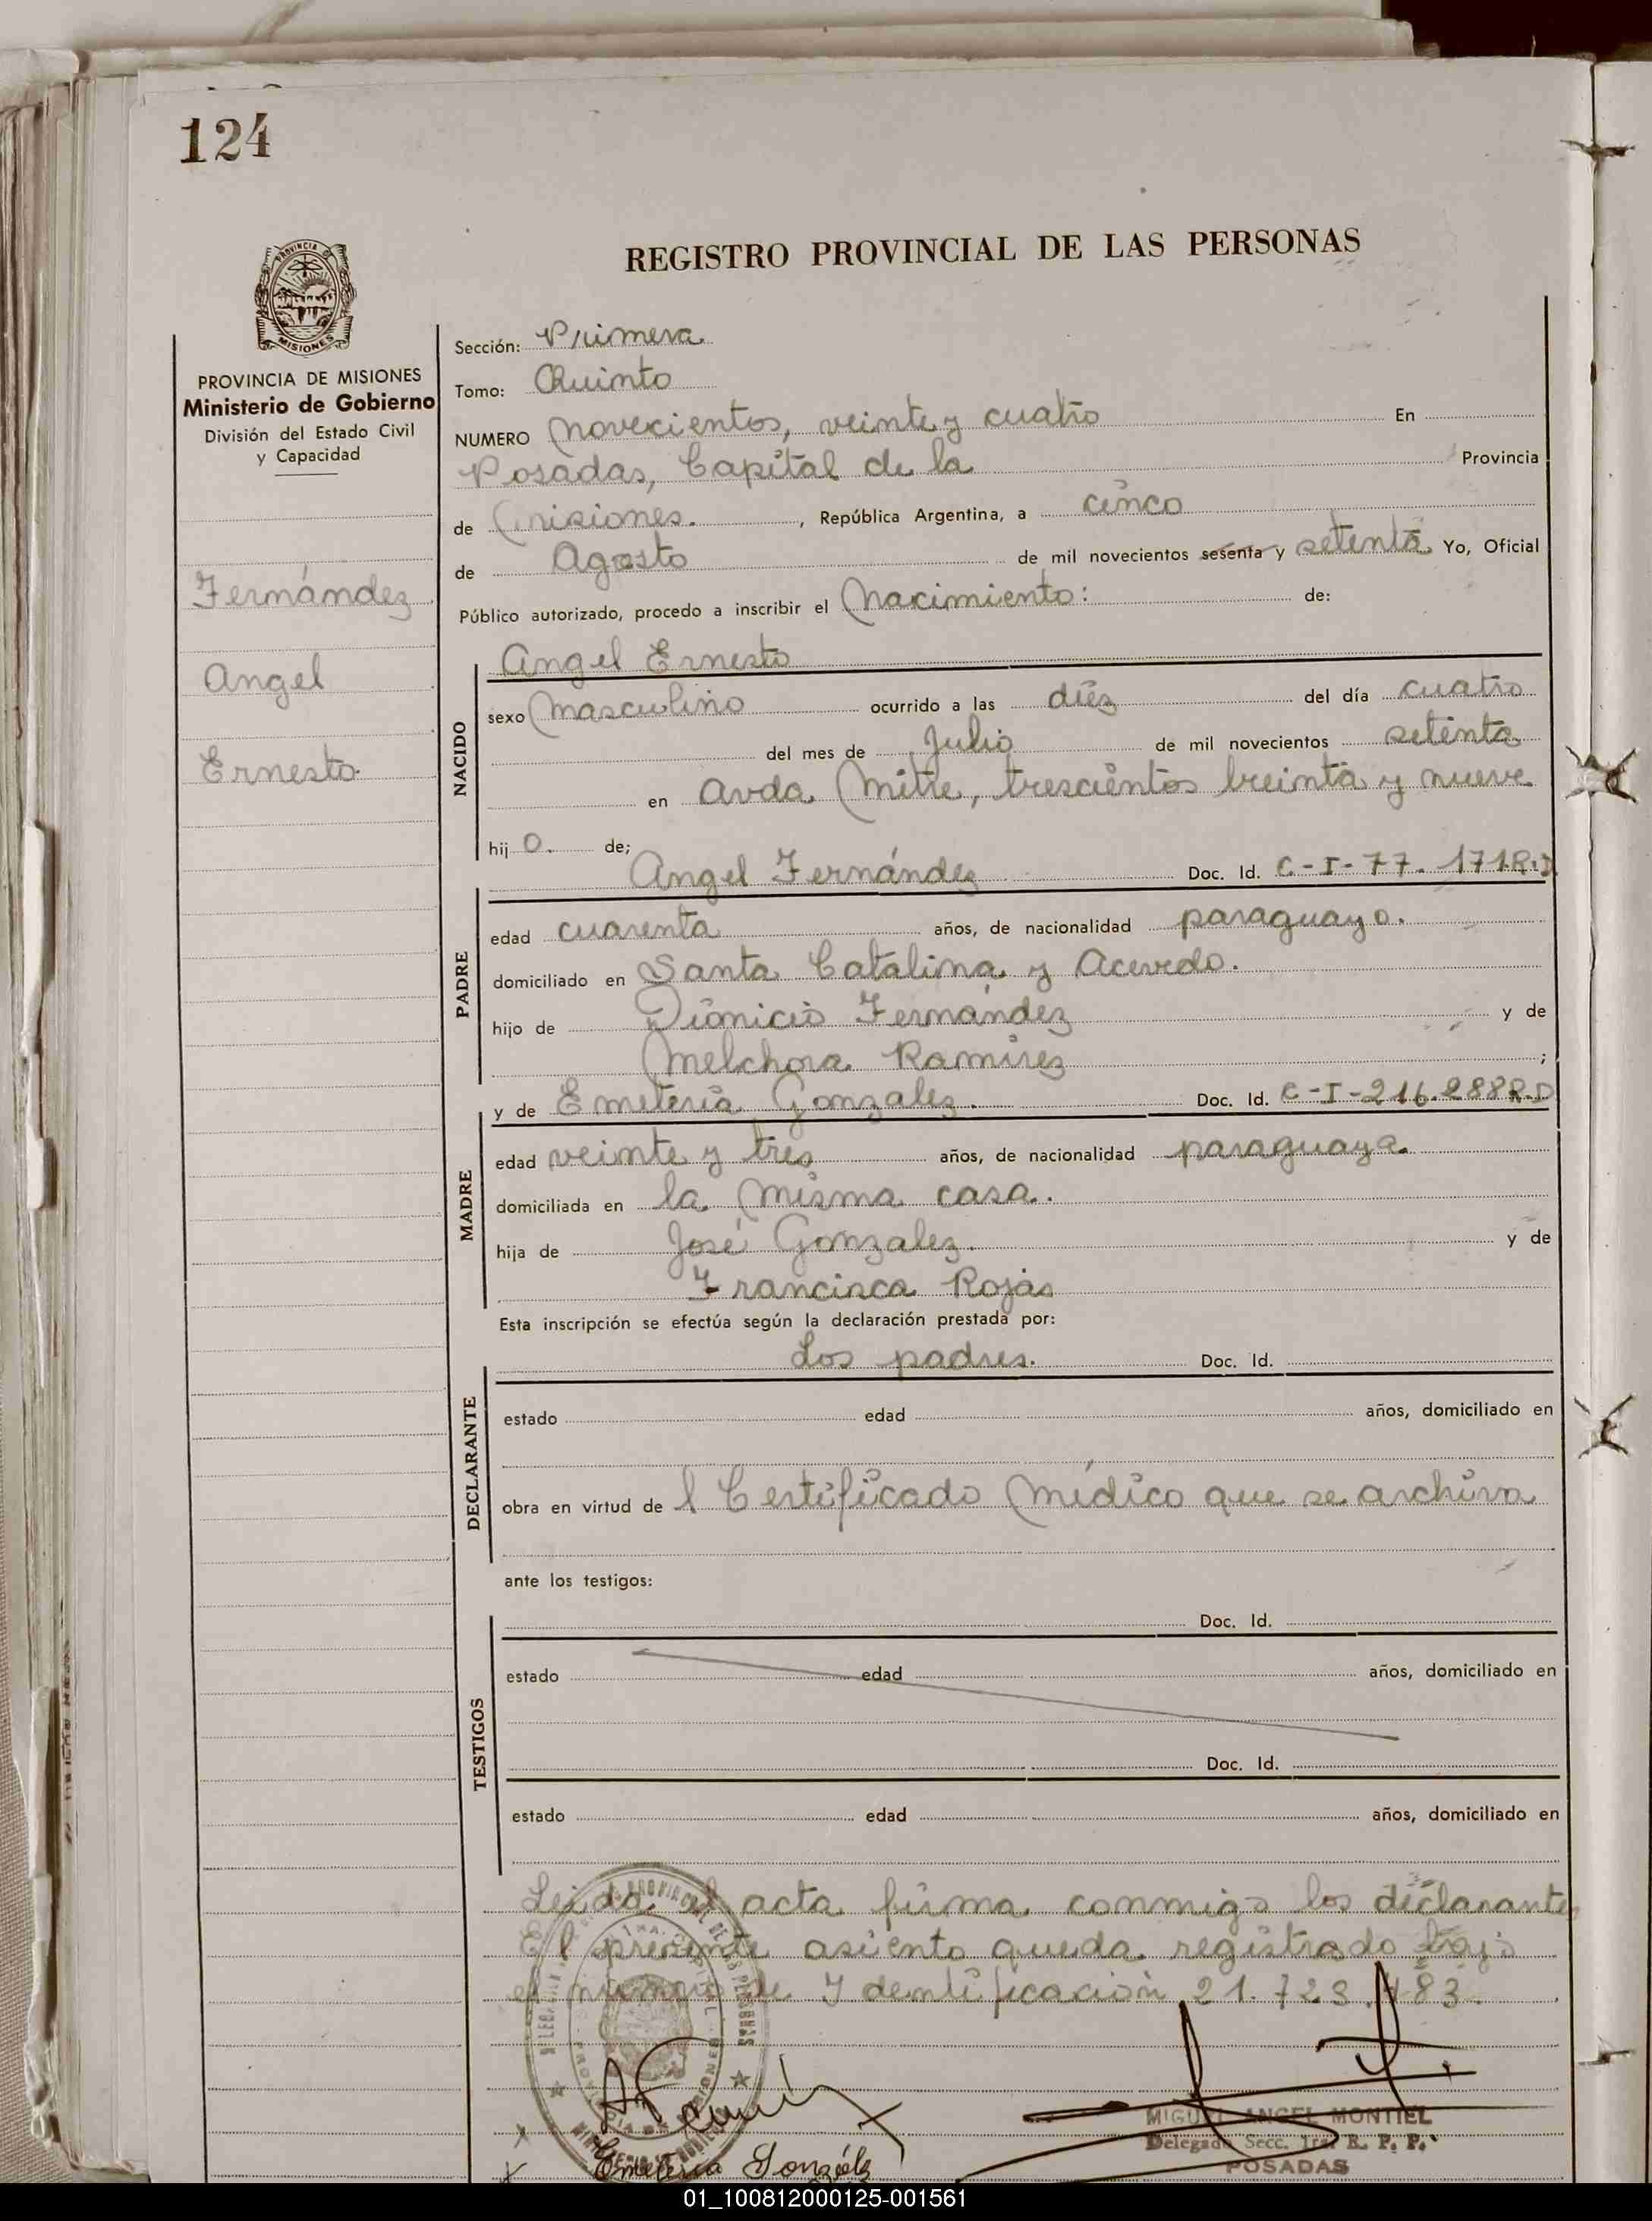 124
REGISTRO PROVINCIAL DE LAS PERSONAS
PROVINCIA
MISIONES
PROVINCIA DE MISIONES
Ministerio de Gobierno
División del Estado Civil
y Capacidad
Fernández
Angel
Ernesto
Sección: Primera
Tomo: Quinto
NUMERO Novecientos, veinte y cuatro En
Posadas, Capital de la Provincia
de Misiones. , República Argentina, a cinco
de Agosto de mil novecientos sesenta y setenta Yo, Oficial
Público autorizado, procedo a inscribir el Nacimiento: de:
Angel Ernesto
NACIDO
sexo Masculino ocurrido a las diez del día cuatro
del mes de Julio de mil novecientos setenta
en Avda Mitre, trescientos treinta y nueve
hij o. de;
Angel Fernández Doc. Id. C-I-77.171R.D
PADRE
edad cuarenta años, de nacionalidad paraguayo.
domiciliado en Santa Catalina y Acevedo.
hijo de Dionicio Fernández y de
Melchora Ramírez ;
y de Emeteria Gonzalez. Doc. Id. C-I-216.288R.D
MADRE
edad veinte y tres años, de nacionalidad paraguaya.
domiciliada en la misma casa.
hija de José Gonzalez. y de
Francisca Rojas
Esta inscripción se efectúa según la declaración prestada por:
Los padres. Doc. Id.
DECLARANTE
estado edad años, domiciliado en
obra en virtud de l Certificado Médico que se archiva
ante los testigos:
Doc. Id.
TESTIGOS
estado edad años, domiciliado en
Doc. Id.
estado edad años, domiciliado en
Leida el acta firma conmigo los declarantes
El presente asiento queda registrado bajo
el número de Identificación 21.723.483.
Emeteria González
MIGUEL ANGEL MONTIEL
Delegado Secc. 1ra. R. P. P.
POSADAS
01_100812000125-001561